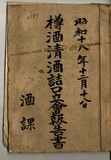 昭和十八年十二月十八日
樽酒清酒詰口會報告書
酒課